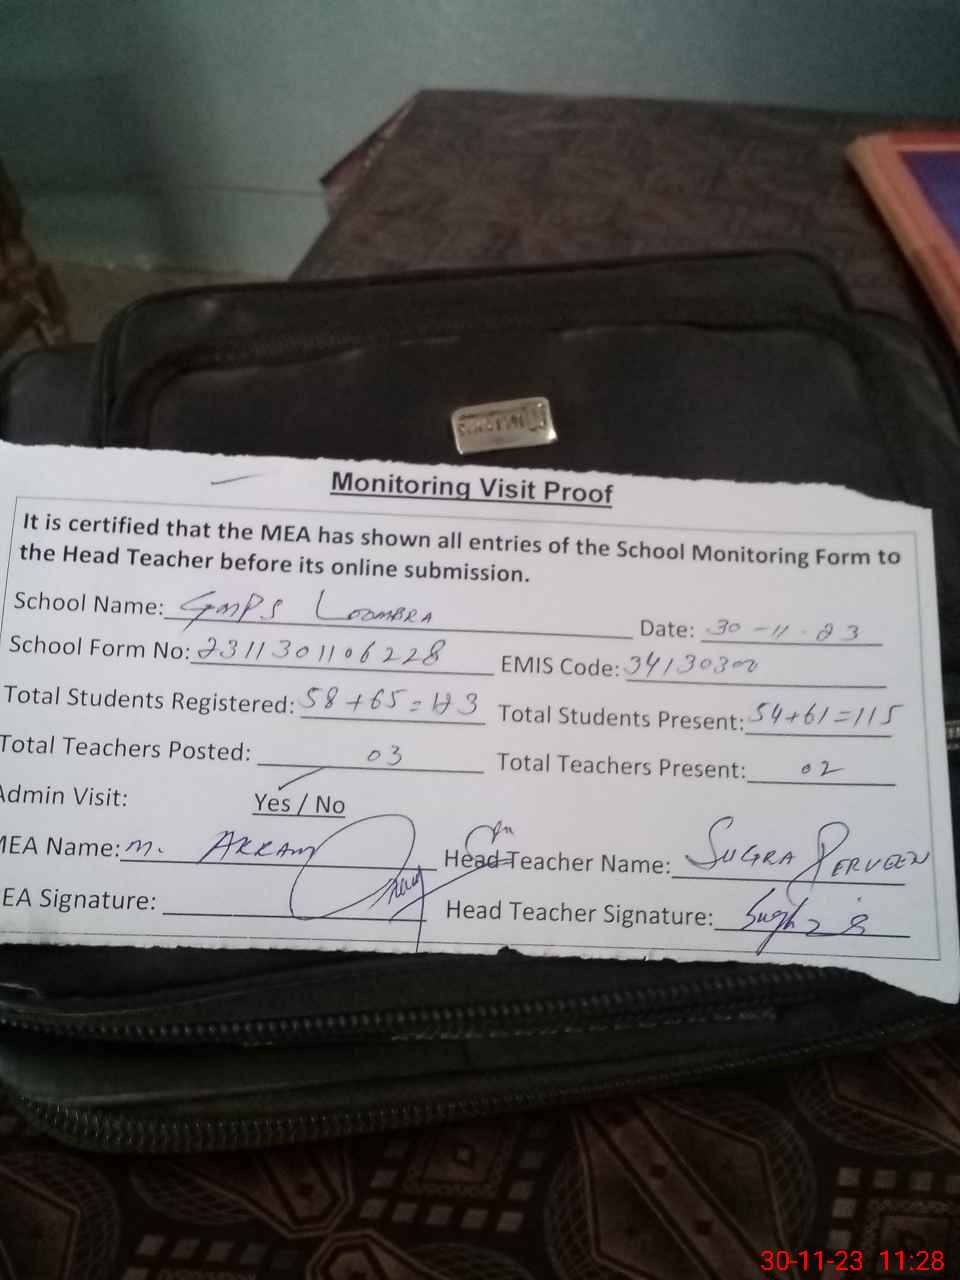 Monitoring Visit Proof
It is certified that the MEA has shown all entries of the School Monitoring Form to
the Head Teacher before its online submission.
School Name: GMPS LOOMBRA
Date: 30-11-23
School Form No: 2311301106228
EMIS Code: 34130300
Total Students Registered: 58+65=123
Total Students Present: 54+61=115
Total Teachers Posted: 03
Total Teachers Present: 02
Admin Visit: Yes / No
MEA Name: M. AKRAM
Head Teacher Name: SUGRA PERVEEN
EA Signature:
Head Teacher Signature:
30-11-23 11:28